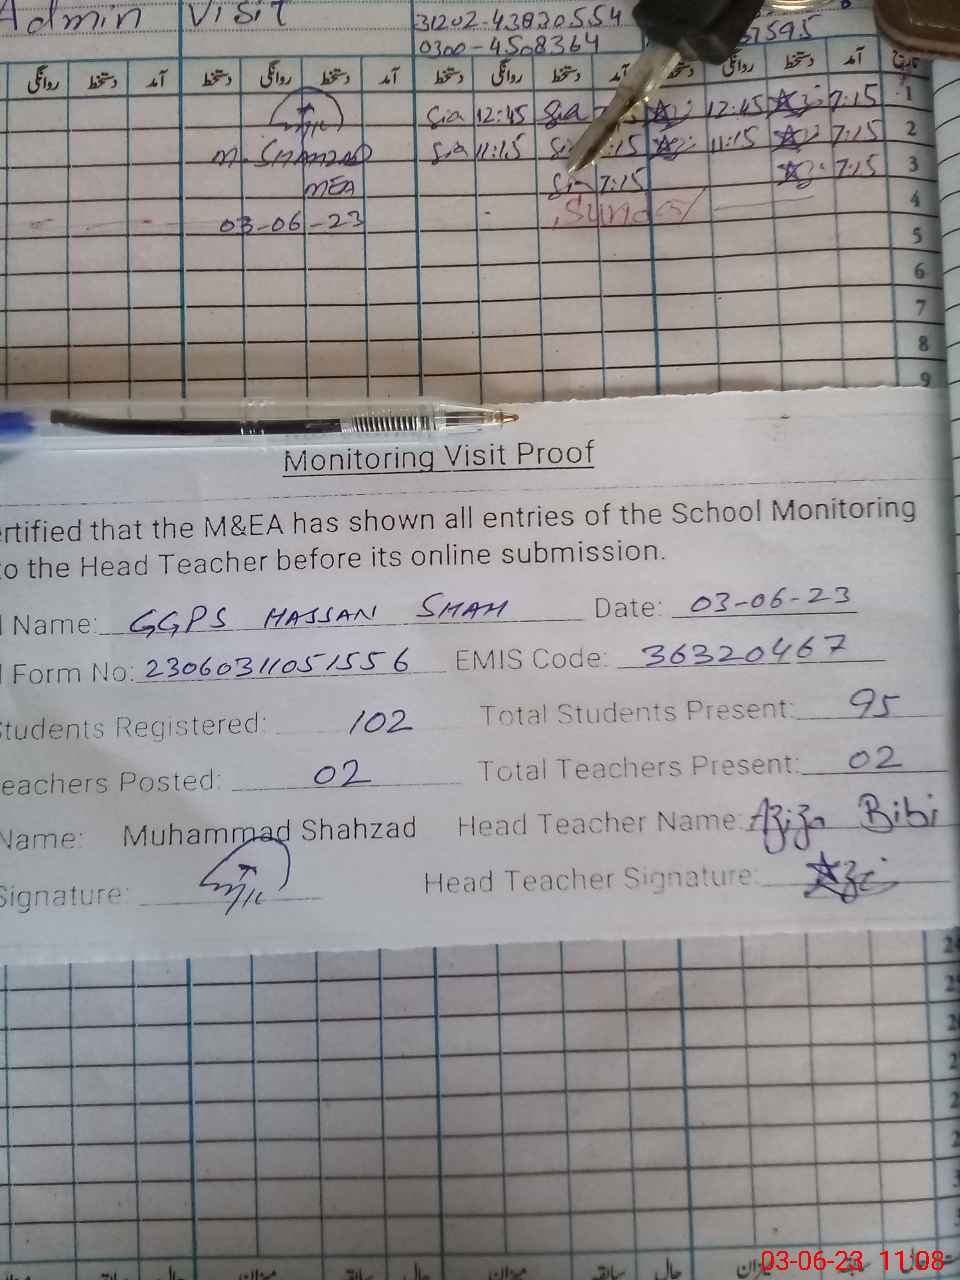 Admin Visit
31202-43820554
0300-4508364
روانگی دستخط آمد دستخط روانگی دستخط آمد دستخط روانگی دستخط آمد روانگی دستخط آمد تاریخ
Sia 12:45 Sia 12:45 7:15 1
M. SHAHZAD Sia 11:15 11:15 7:15 2
MEA Sia 7:15 7:15 3
03-06-23 Sunday 4
5
6
7
8
9
Monitoring Visit Proof
ertified that the M&EA has shown all entries of the School Monitoring
to the Head Teacher before its online submission.
l Name: GGPS HASSAN SHAH Date: 03-06-23
l Form No: 23060311051556 EMIS Code: 36320467
Students Registered: 102 Total Students Present: 95
eachers Posted: 02 Total Teachers Present: 02
Name: Muhammad Shahzad Head Teacher Name: Aziza Bibi
Signature: Head Teacher Signature:
میزان حال سابقہ میزان حال سابقہ میزان سابقہ حال
03-06-23 11:08